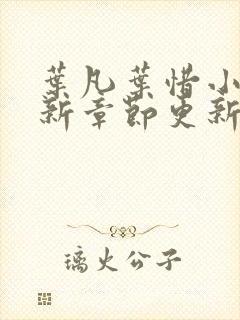 葉凡葉惜小
新章節更新
璃火公子